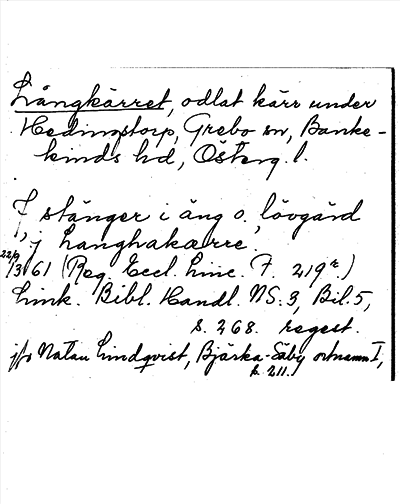 Långkärret, odlat kärr under
Hedingstorp, Grebo sn, Banke-
kinds hd, Österg. l.
7 stänger i äng o. lövgärd
i Langhakærre.
22/9
1361 (Reg. Eccl. Linc. F. 219r.)
Link. Bibl. Handl. NS:3, Bil.5,
s. 268. regest.
jfr Natan Lindqvist, Bjärka-Säby ortnamn I,
s. 211.